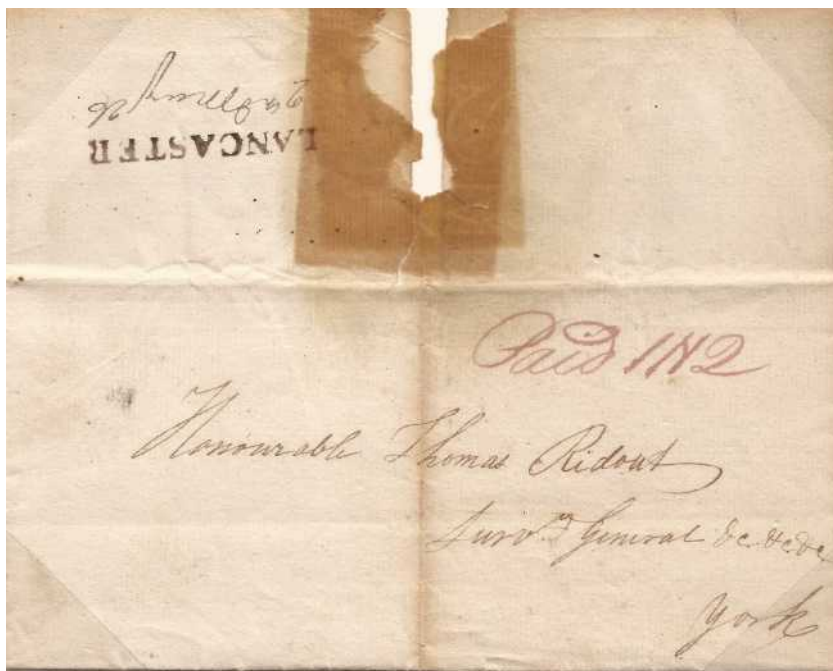 LANCASTER
26
Paid 1N2
Honourable Thomas Ridout
Survr. General &c &c &c
York